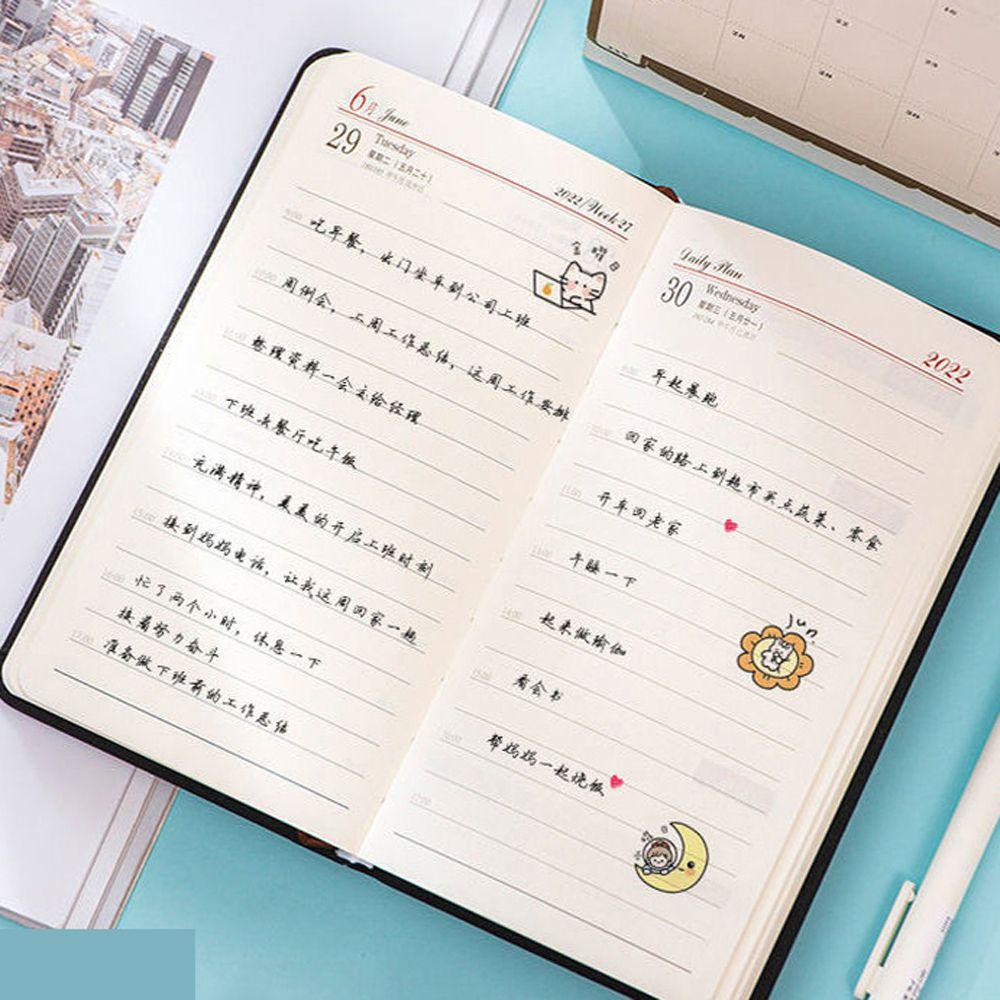 6月 June
29 Tuesday
星期二（五月二十）
2022/Week-27
9:00 吃早餐，出门坐车到公司上班
10:00 周例会，上周工作总结，这周工作安排
11:00 整理资料一会交给经理
下班去餐厅吃午饭
充满精神，美美的开启上班时刻
15:00 接到妈妈电话，让我这周回家一起
16:00 忙了两个小时，休息一下
接着努力奋斗
17:00 准备做下班前的工作总结
Daily Plan
30 Wednesday
星期三（五月廿一）
2022
9:00 早起晨跑
10:00 回家的路上到超市买点蔬菜、零食
11:00 开车回老家
13:00 午睡一下
14:00 起来做瑜伽
jun.
15:00 看会书
16:00 帮妈妈一起烧饭
17:00